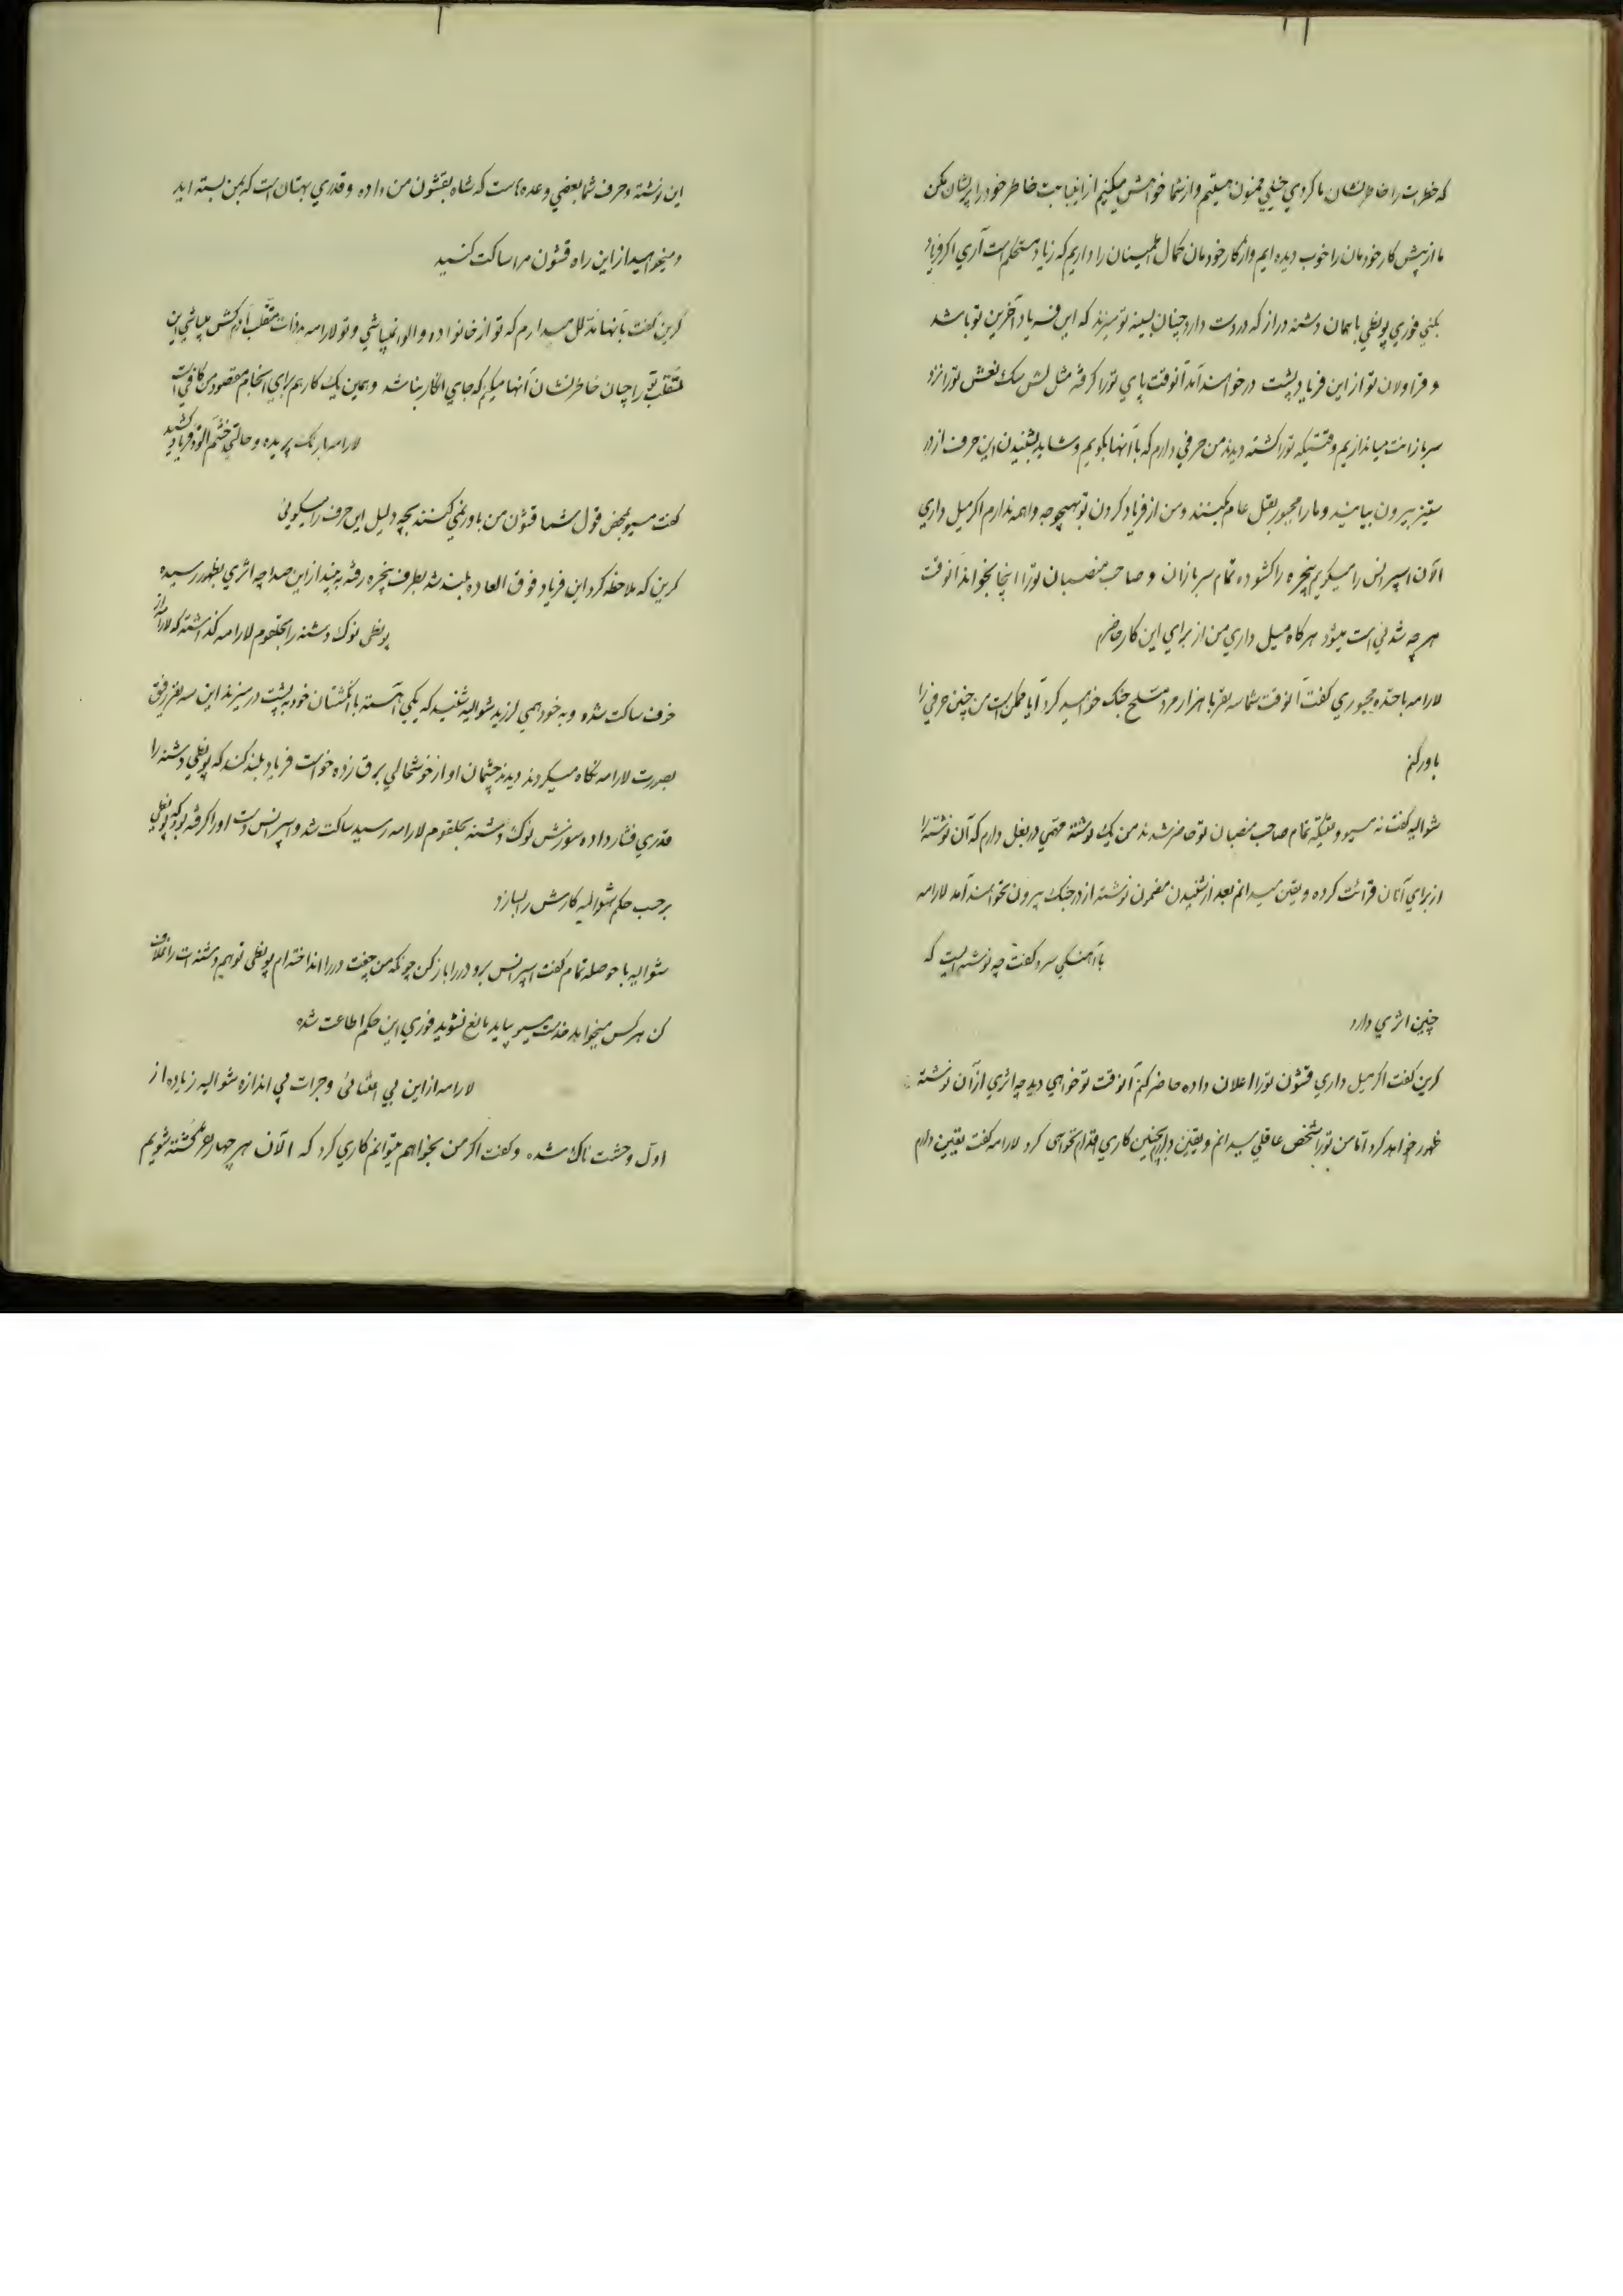 که خطرت را خاطرنشان ما کردی خیلی ممنون هستیم و از شما خواهش میکنیم از اینبابت خاطر خود را پریشان مکن
ما از پیش کار خودمان را خوب دیده ایم و از کار خودمان کمال اطمینان را داریم که زیاد مستحکم است آری اگر فریاد
بکنی فوری پونطی با همان دشنه دراز که در دست دارد چنان بسینه تو میزند که این فریاد آخرین تو باشد
و قراولان تو از این فریاد بپشت در خواهند آمد آنوقت پای تو را گرفته مثل لش سگ نعش تو را نزد
سربازانت میاندازیم وقتیکه تو را کشته دیدند من حرفی دارم که با آنها بگویم و شاید بشنیدن این حرف از در
ستیز بیرون بیایند و ما را مجبور بقتل عام نکنند و من از فریاد کردن تو بهیچوجه واهمه ندارم اگر میل داری
الآن اسپرانس را میگویم پنجره را گشوده تمام سربازان و صاحب منصبان تو را اینجا بخواند آنوقت
هرچه شدنی است میشود هرگاه میل داری من از برای این کار حاضرم
لارامه با خنده مجبوری گفت آنوقت شما سه نفر با هزار مرد مسلح جنگ خواهید کرد آیا ممکن است من چنین حرفی را
باور کنم
شوالیه گفت نه مسیو وقتیکه تمام صاحب منصبان تو حاضر شدند من یک نوشته مهمی در بغل دارم که آن نوشته را
از برای آنان قرائت کرده و یقین میدانم بعد از شنیدن مضمون نوشته از در جنگ بیرون نخواهند آمد لارامه
با آهنگی سرد گفت چه نوشته ایست که
چنین اثری دارد
کرین گفت اگر میل داری قشون تو را اعلان داده حاضر کنم آنوقت تو خواهی دید چه اثری از آن نوشته
ظهور خواهد کرد اما من تو را شخص عاقلی میدانم و یقین دارم بچنین کاری اقدام نخواهی کرد لارامه گفت یقین دارم
این نوشته و حرف شما بعضی وعده هاست که شاه بقشون من داده و قدری بهتان است که بمن بسته اید
و میخواهید از این راه قشون مرا ساکت کنید
کرین گفت بآنها مدلل میدارم که تو از خانواده والوا نمیباشی و تو لارامه بدذات متقلب آدم کش میباشی این
تقلب تو را چنان خاطرنشان آنها میکنم که جای انکار نباشد و همین یک کار هم برای انجام مقصود من کافی است
لارامه با رنگ پریده و حالتی خشم آلود فریاد کشید
گفت مسیو بمحض قول شما قشون من باور نمی کنند بچه دلیل این حرف را میگوئی
کرین که ملاحظه کرد این فریاد فوق العاده بلند شد بطرف پنجره رفته ببیند از این صدا چه اثری بظهور رسیده
پونطی نوک دشنه را بحلقوم لارامه گذاشته که لارامه از
حرف ساکت شده و به خود همی لرزید شوالیه شنید که یکی آهسته با انگشتان خود بپشت در میزند این سه نفر رفیق
بصورت لارامه نگاه میکردند دیدند چشمان او از خوشحالی برق زده خواست فریاد بلند کند که پونطی دشنه را
قدری فشار داده سوزش نوک دشنه بحلقوم لارامه رسید ساکت شد و اسپرانس دست او را گرفته بود که پونطی
برحسب حکم شوالیه کارش را بسازد
شوالیه با حوصله تمام گفت اسپرانس برو در را باز کن چونکه من چفت در را انداخته ام پونطی تو هم دشنه ات را غلاف
کن هر کس میخواهد خدمت مسیو بیاید مانع نشوید فوری این حکم اطاعت شده
لارامه از این بی اعتنائی و جرات بی اندازه شوالیه زیاده از
اول وحشت ناک شده و گفت اگر من بخواهم میتوانم کاری کرد که الآن هر چهار نفر کشته شویم